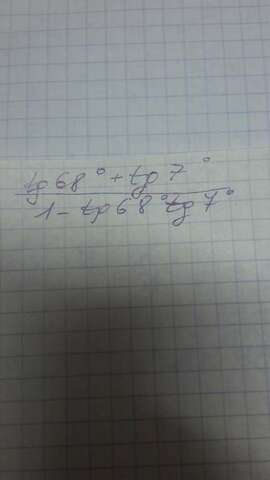 tg 68° + tg 7°
1 - tg 68° tg 7°